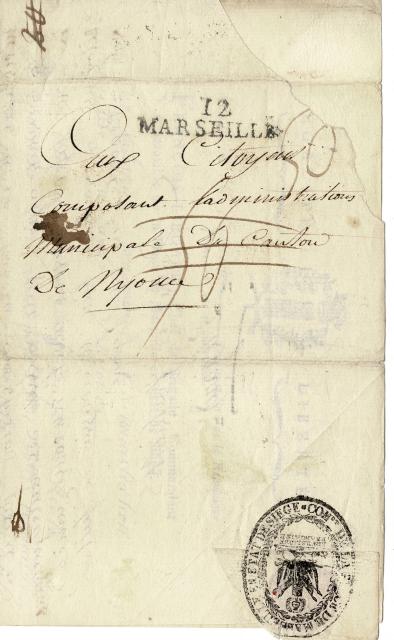 12
MARSEILLE
Aux Citoyens
Composant l'administration
Municipale Du Canton
De Nyons
ETAT DE SIEGE • COM